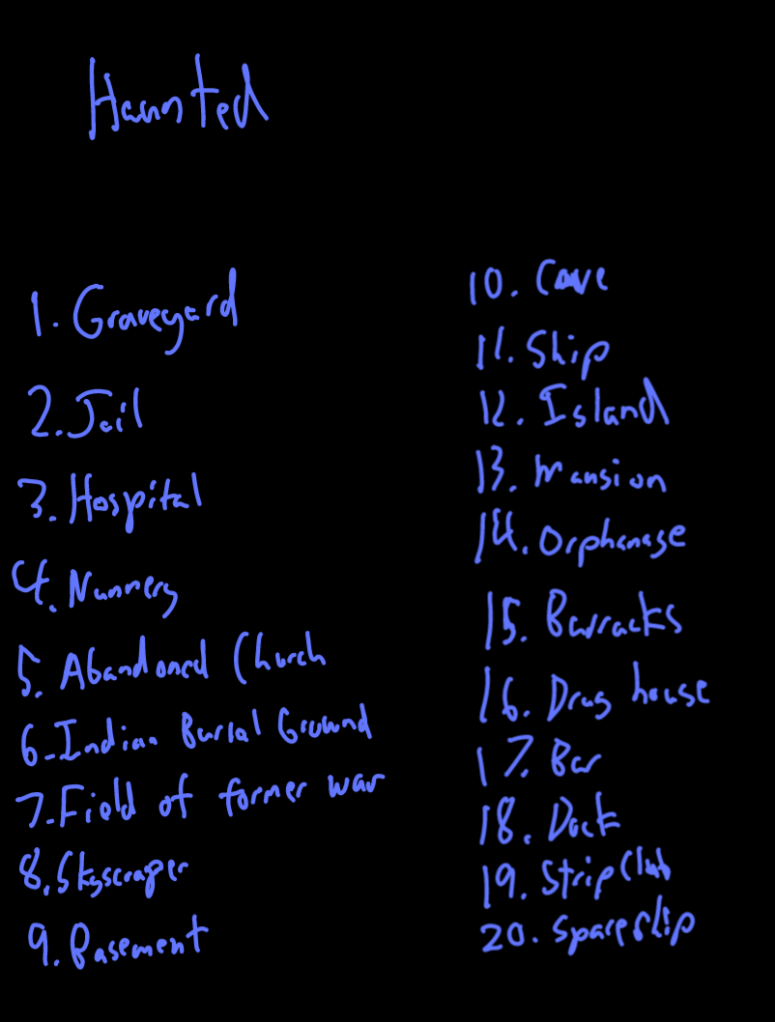 Haunted
1. Graveyard
2. Jail
3. Hospital
4. Nunnery
5. Abandoned Church
6. Indian Burial Ground
7. Field of former war
8. Skyscraper
9. Basement
10. Cave
11. Ship
12. Island
13. Mansion
14. Orphanage
15. Barracks
16. Drug house
17. Bar
18. Dock
19. Strip Club
20. Spaceship